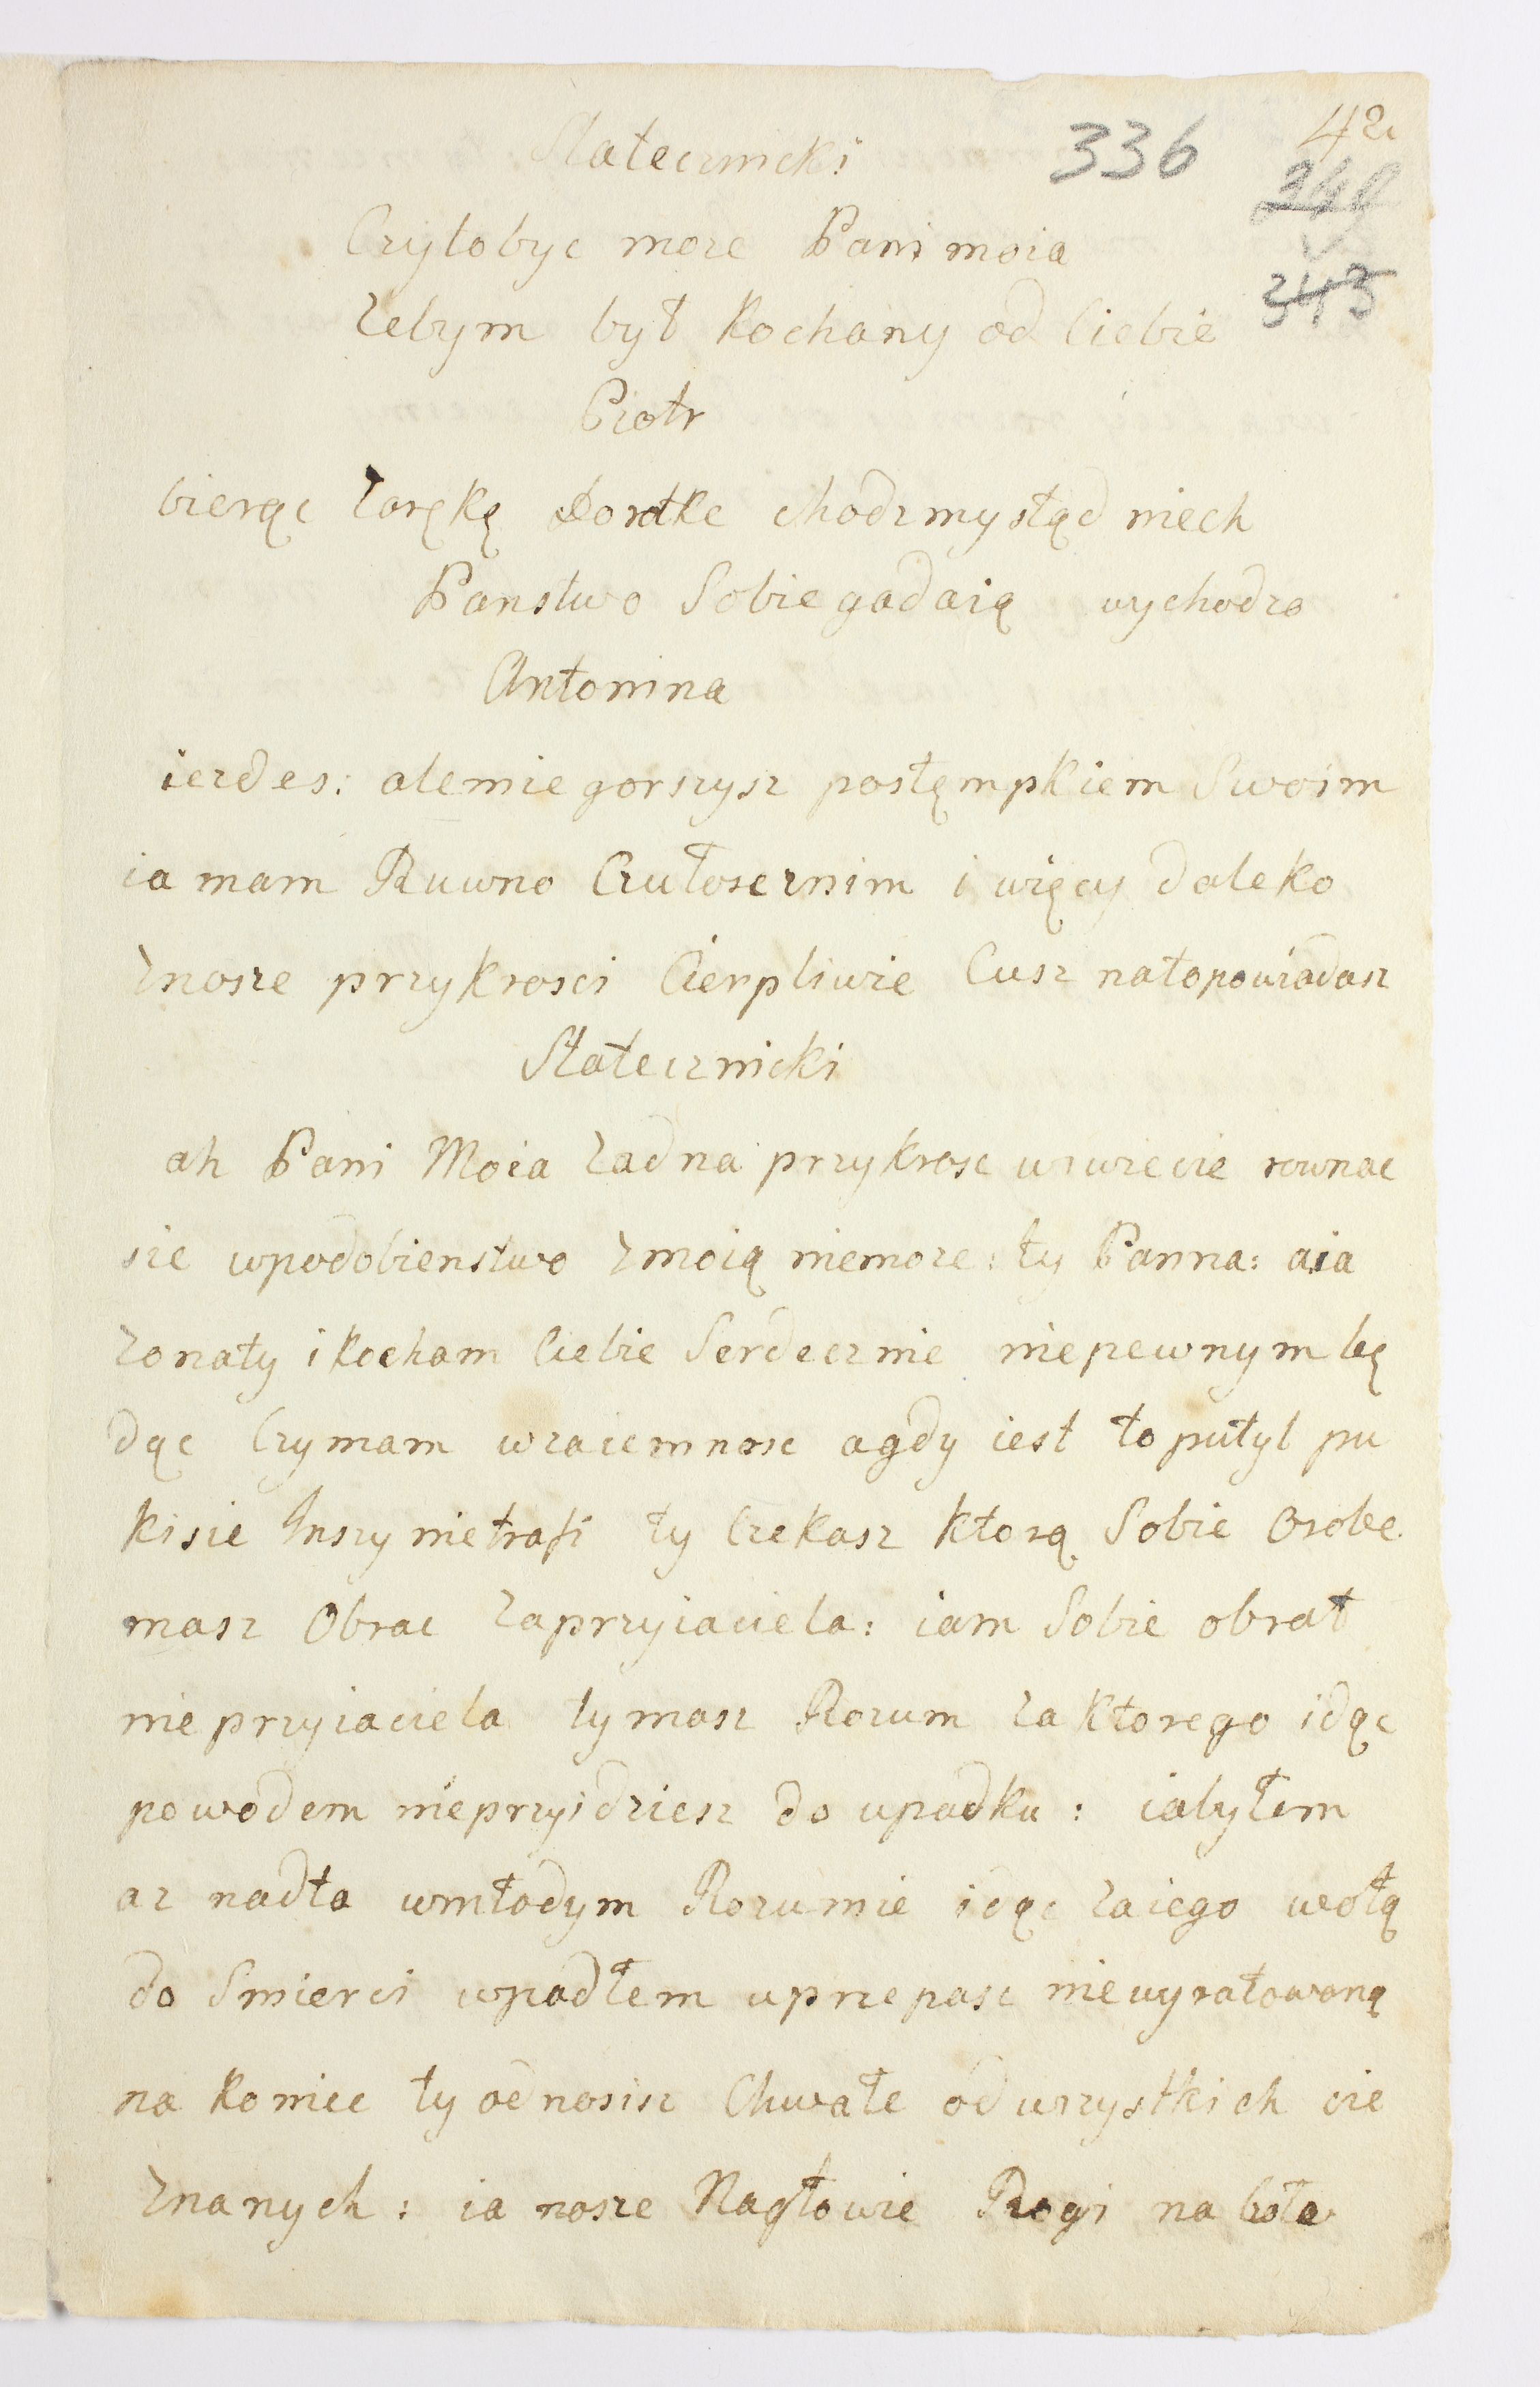 42
336
Statecznicki
349
343
Czytobyc moze Pani moia
zebym był kochany od Ciebie
Piotr
bierąc zarękę Dorotke chodzmystąd niech
Panstwo Sobie gadaią wychodzo
Antonina
iezdes: alemie gorszysz postęmpkiem Swoim
ia mam Ruwno Czułosc znim i więcy daleko
znosze przykrosci Cierpliwie Cusz natopowiadasz
Statecznicki
ah Pani Moia zadna przykrosc wswiecie rownac
sie wpodobienstwo zmoią niemoze: ty Panna: aia
zonaty i kocham Ciebie Serdecznie niepewnym bę
dąc Czymam wzaiemnosc agdy iest to putyl pu
kisie Inszy nietrafi ty Czekasz ktorą Sobie Osobe
masz Obrac zaprzyiaciela: iam Sobie obrał
nieprzyiaciela tymasz Rozum zaktorego idąc
powodem nieprzyidziesz do upadku: iabyłem
az nadto wmłodym Rozumie idąc zaiego wolą
do Smierci wpadłem wprzepasc niewyratowaną
na koniec ty odnosisz Chwałe odwszystkich cie
znanych: ia nosze Nagłowie Rogi na Czole